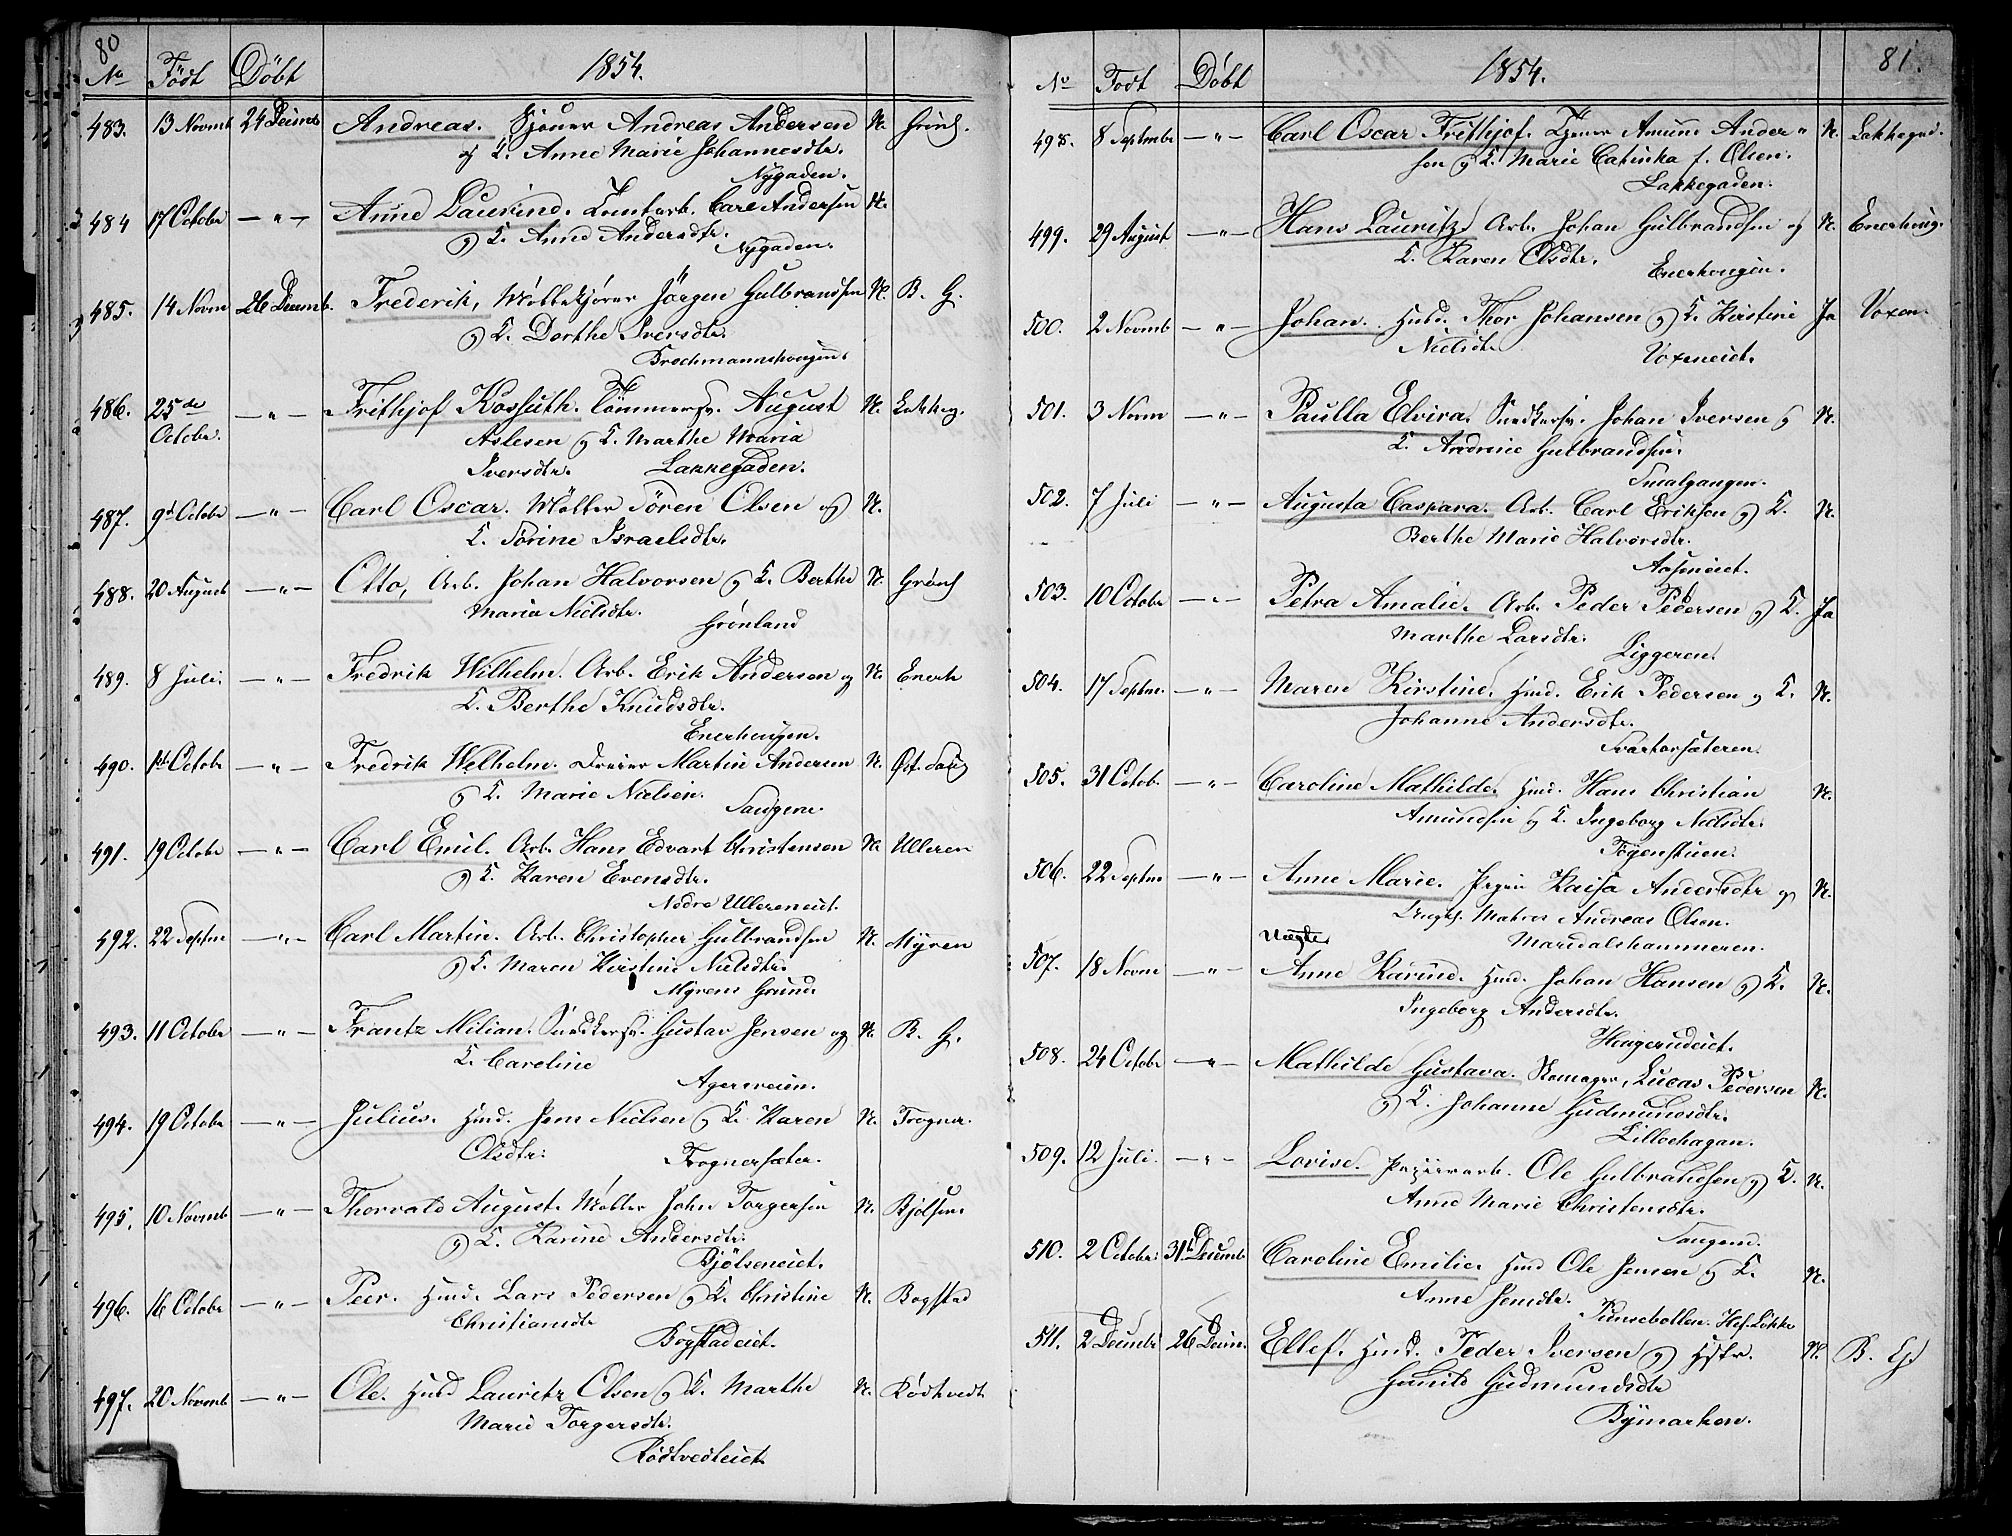 80
No Födt Döbt 1854.
483. 13 Novmb 24 Decmb Andreas. Andreas Andersen N. Grönl.
og K. Anne Marie Johannesdtr.
Nygaden.
484 17 Octobr — " — Anne Laurine. Carl Andersen N.
og K. Anne Andersdtr.
Nygaden.
485. 14 Novm 26 Decemb. Frederik, Möllekjörer Jörgen Gulbrandsen N. B. G.
og K. Dorthe Iversdtr.
Brochmannshougen.
486. 25de — " — Frithjof Kossuth. Tömmersv. August N. Lakkeg.
Octobr. Aslesen og K. Marthe Maria
Iversdtr. Lakkegaden.
487. 9d Octobr — " — Carl Oscar. Möller Sören Olsen og N.
K. Sörine Israelsdtr.
488. 20 August — " — Otto, Arb. Johan Halvorsen og K. Berthe N. Grönl
Maria Nielsdtr. Grönland
489. 8 Juli. — " — Fredrik Wilhelm. Arb. Erik Andersen og N. Enerh
K. Berthe Knudsdtr.
Enerhougen.
490. 1st Octobr — " — Fredrik Wilhelm. Dreier Martin Andersen N. Öst. Saug
og K. Marie Nielsen.
Saugene.
491. 19 Octobr — " — Carl Emil. Arb. Hans Edvart Christensen N. Ulleren
og K. Karen Evensdtr.
Nedre Ullereneiet.
492. 22 Septm — " — Carl Martin. Arb. Christopher Gulbrandsen N. Myren
og K. Maren Kirstine Nielsdtr.
Myrens Grund
493. 11 Octobr — " — Frantz Milian. Snedkersv. Gustav Jensen og N. B. G.
K. Caroline
Agersveien.
494. 19 Octobr — " — Julius. Husd. Jens Nielsen og K. Karen N. Frogner.
Olsdtr. Frognersæter.
495. 10 Novmb — " — Thorvald August. Möller John Torgersen N. Bjölsen.
og K. Karine Andersdtr.
Bjölseneiet.
496. 16 Octobr — " — Peer. Husd. Lars Pedersen og K. Christine N. Bogstad
Christiansdtr
Bogstadeiet.
497. 20 Novmb — " — Ole. Husd Lauritz Olsen og K. Marthe N. Rödtvedt
Marie Torgersdtr.
Rödtvedteiet.
81.
No Födt Döbt 1854.
498. 8 Septmbr — " — Carl Oscar Frithjof. Amund Ander= N. Lakkegad.
sen og K. Marie Catinka f. Olsen.
Lakkegaden.
499. 29 August — " — Hans Lauritz. Arb. Johan Gulbrandsen og N. Enerhoug.
K. Karen Olsdtr.
Enerhougen.
500. 2 Novmb — " — Johan. Husd. Thor Johansen og K. Kirstine Ja Voxen.
Nielsdtr Voxeneiet.
501. 3 Novm — " — Paulla Elvira. Snedkersv. Johan Iversen og N.
K. Andrine Gulbrandsen.
Smalgangen.
502. 7 Juli — " — Augusta Caspara. Arb. Carl Eriksen og K. N.
Berthe Marie Halvorsdtr.
503. 10 Octobr — " — Petra Amalie. Arb. Peder Pedersen og K. Ja
Marthe Larsdtr.
Liggeren.
504. 17 Septm. — " — Maren Kirstine. Husd. Erik Pedersen og K. N.
Johanne Andersdtr.
Svartorsæteren.
505. 31 Octob. — " — Caroline Mathilde. Husd. Hans Christian N.
Amundsen og K. Ingeborg Nielsdtr.
506. 22 Septm — " — Anne Marie. Pigen Kaisa Andersdtr og N.
Matros Andreas Olsen.
Uægte Maridalshammeren.
507. 18 Novm — " — Anne Karine. Husd. Johan Hansen og K. N.
Ingeborg Andersdtr.
Hougerudeiet.
508. 24 Octobr — " — Mathilde Gustava. Skomager, Lucas Pedersen N.
og K. Johanne Gudmundsdtr.
Lillohagan.
509. 12 Juli. — " — Lovise. Papirarb. Ole Gulbrandsen og K. N.
Anne Marie Christensdtr.
Saugene.
510. 2 Octobr. 31t Decemb Caroline Emilie. Husd Ole Jensen og K. N.
Anne Jensdtr.
Punsebollen. Hef. Lökke
511. 2 Decmbr 26 Decm. Ellef. Husd. Peder Iversen og Hstr. N. B. G
Gunild Gudmundsdtr
Bymarken.